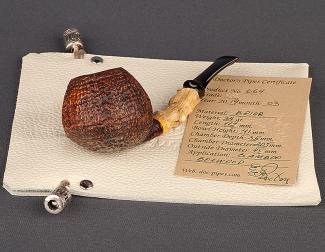 Doctor's Pipes Certificate
Product No. 664
Year: 2019 month 03
Material: BRIAR
Weight: 35 gr.
Length: mm.
Bowl Height: 41 mm.
Chamber Depth: 35 mm.
Chamber Diameter: mm.
Outside Diameter: mm.
Application: BAMBOO
Web. doc-pipes.com